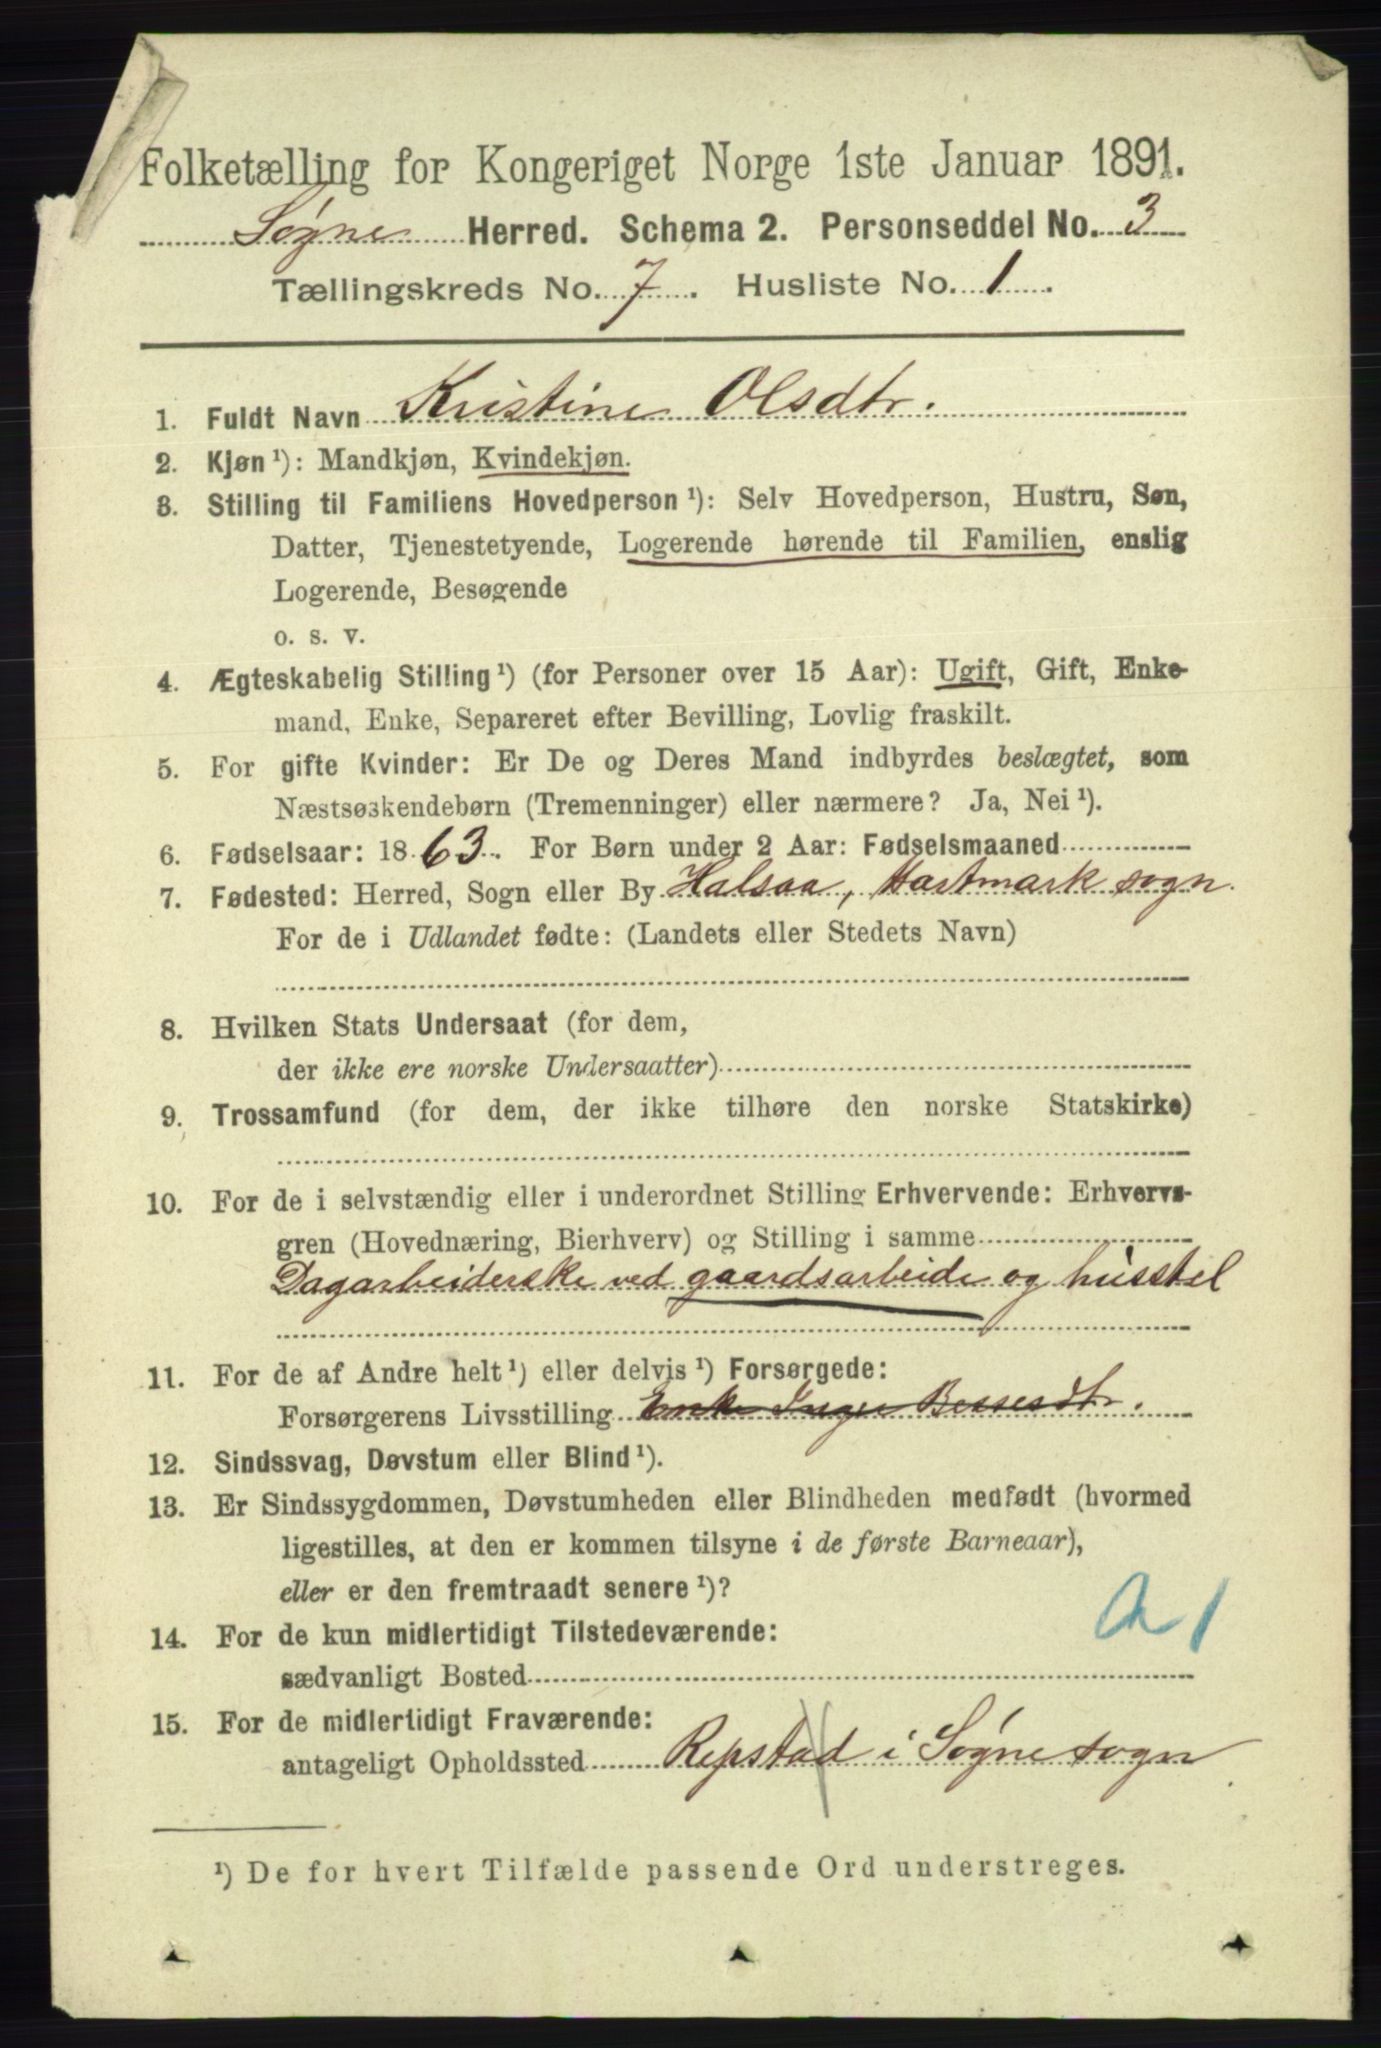 Folketælling for Kongeriget Norge 1ste Januar 1891.
Søgne Herred. Schema 2. Personseddel No. 3
Tællingskreds No. 7. Husliste No. 1.
1. Fuldt Navn Kristine Olsdtr.
2. Kjøn ¹): Mandkjøn, Kvindekjøn.
3. Stilling til Familiens Hovedperson ¹): Selv Hovedperson, Hustru, Søn,
Datter, Tjenestetyende, Logerende hørende til Familien, enslig
Logerende, Besøgende
o. s. v.
4. Ægteskabelig Stilling ¹) (for Personer over 15 Aar): Ugift, Gift, Enke-
mand, Enke, Separeret efter Bevilling, Lovlig fraskilt.
5. For gifte Kvinder: Er De og Deres Mand indbyrdes beslægtet, som
Næstsøskendebørn (Tremenninger) eller nærmere? Ja, Nei ¹).
6. Fødselsaar: 1863. For Børn under 2 Aar: Fødselsmaaned
7. Fødested: Herred, Sogn eller By Halsaa, Hartmark sogn.
For de i Udlandet fødte: (Landets eller Stedets Navn)
8. Hvilken Stats Undersaat (for dem,
der ikke ere norske Undersaatter)
9. Trossamfund (for dem, der ikke tilhøre den norske Statskirke)
10. For de i selvstændig eller i underordnet Stilling Erhvervende: Erhvervs-
gren (Hovednæring, Bierhverv) og Stilling i samme
Dagarbeiderske ved gaardsarbeide og husstel
11. For de af Andre helt ¹) eller delvis ¹) Forsørgede:
Forsørgerens Livsstilling Enke Inger
12. Sindssvag, Døvstum eller Blind ¹).
13. Er Sindssygdommen, Døvstumheden eller Blindheden medfødt (hvormed
ligestilles, at den er kommen tilsyne i de første Barneaar),
eller er den fremtraadt senere ¹)?
14. For de kun midlertidigt Tilstedeværende:
sædvanligt Bosted
15. For de midlertidigt Fraværende:
antageligt Opholdssted Repstad i Søgne sogn
¹) De for hvert Tilfælde passende Ord understreges.